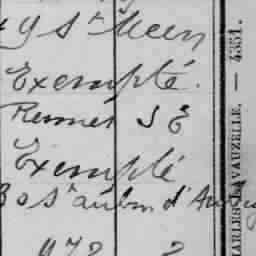 9 St Meen
Exempté.
Rennes S E
Exempté
30 St aubin d'Aubig
972 2
CHARLES-LAVAUZELLE, — 4351.